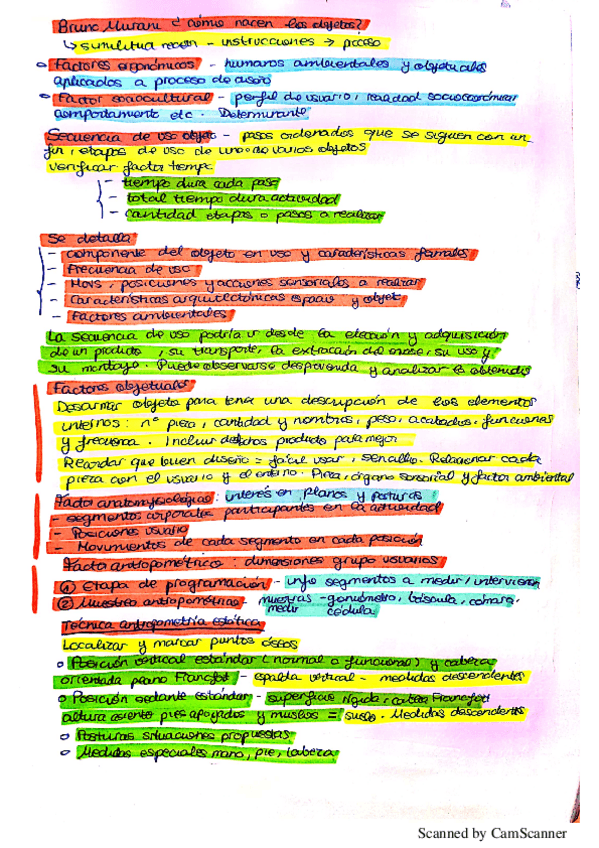 Bruno Munari ¿cómo nacen los objetos?
↳ similitud receta - instrucciones → proceso
o Factores ergonómicos - humanos ambientales y objetuales
aplicados a proceso de diseño
o Factor sociocultural - perfil de usuario, realidad socioeconómica,
comportamiento etc. Determinante
Secuencia de uso objeto - pasos ordenados que se siguen con un
fin, etapas de uso de uno o de varios objetos
verificar factor tiempo
- tiempo dura cada paso
- total tiempo dura actividad
- cantidad etapas o pasos a realizar
Se detalla
- componente del objeto en uso y características formales
- Frecuencia de uso
- Movs, posiciones y acciones sensoriales a realizar
- Características arquitectónicas espacio y objet
- Factores ambientales
La secuencia de uso podría ir desde la elección y adquisición
de un producto, su transporte, la extracción del envase, su uso y
su montaje. Puede observarse desprevenida y analizar lo obtenido
Factores objetuales
Desarmar objeto para tener una descripción de los elementos
internos: nº pieza, cantidad y nombres, peso, acabados, funciones
y frecuencia. Incluir dibujos producto para mejor
Recordar que buen diseño = fácil usar, sencillo. Relacionar cada
pieza con el usuario y el entorno. Pieza, órgano sensorial y factor ambiental
Factor anatomofisiológico: interés en planos y posturas
- segmentos corporales participantes en la actividad
- Posiciones usuario
- Movimientos de cada segmento en cada posición
Factor antropométrico: dimensiones grupo usuarios
① Etapa de programación - info segmentos a medir, intervienen
② Muestreo antropométrico - muestras - goniómetro, báscula, cámara,
medir cédula
Técnica antropometría estática
Localizar y marcar puntos óseos
o Posición vertical estándar (normal o funcional) y cabeza
orientada plano Francfort - espalda vertical - medidas descendentes
o Posición sedante estándar - superficie rígida, cabeza Francfort
altura asiento pies apoyados y muslos = suelo. Medidas descendentes
o Posturas situaciones propuestas
o Medidas especiales mano, pie, cabeza
Scanned by CamScanner